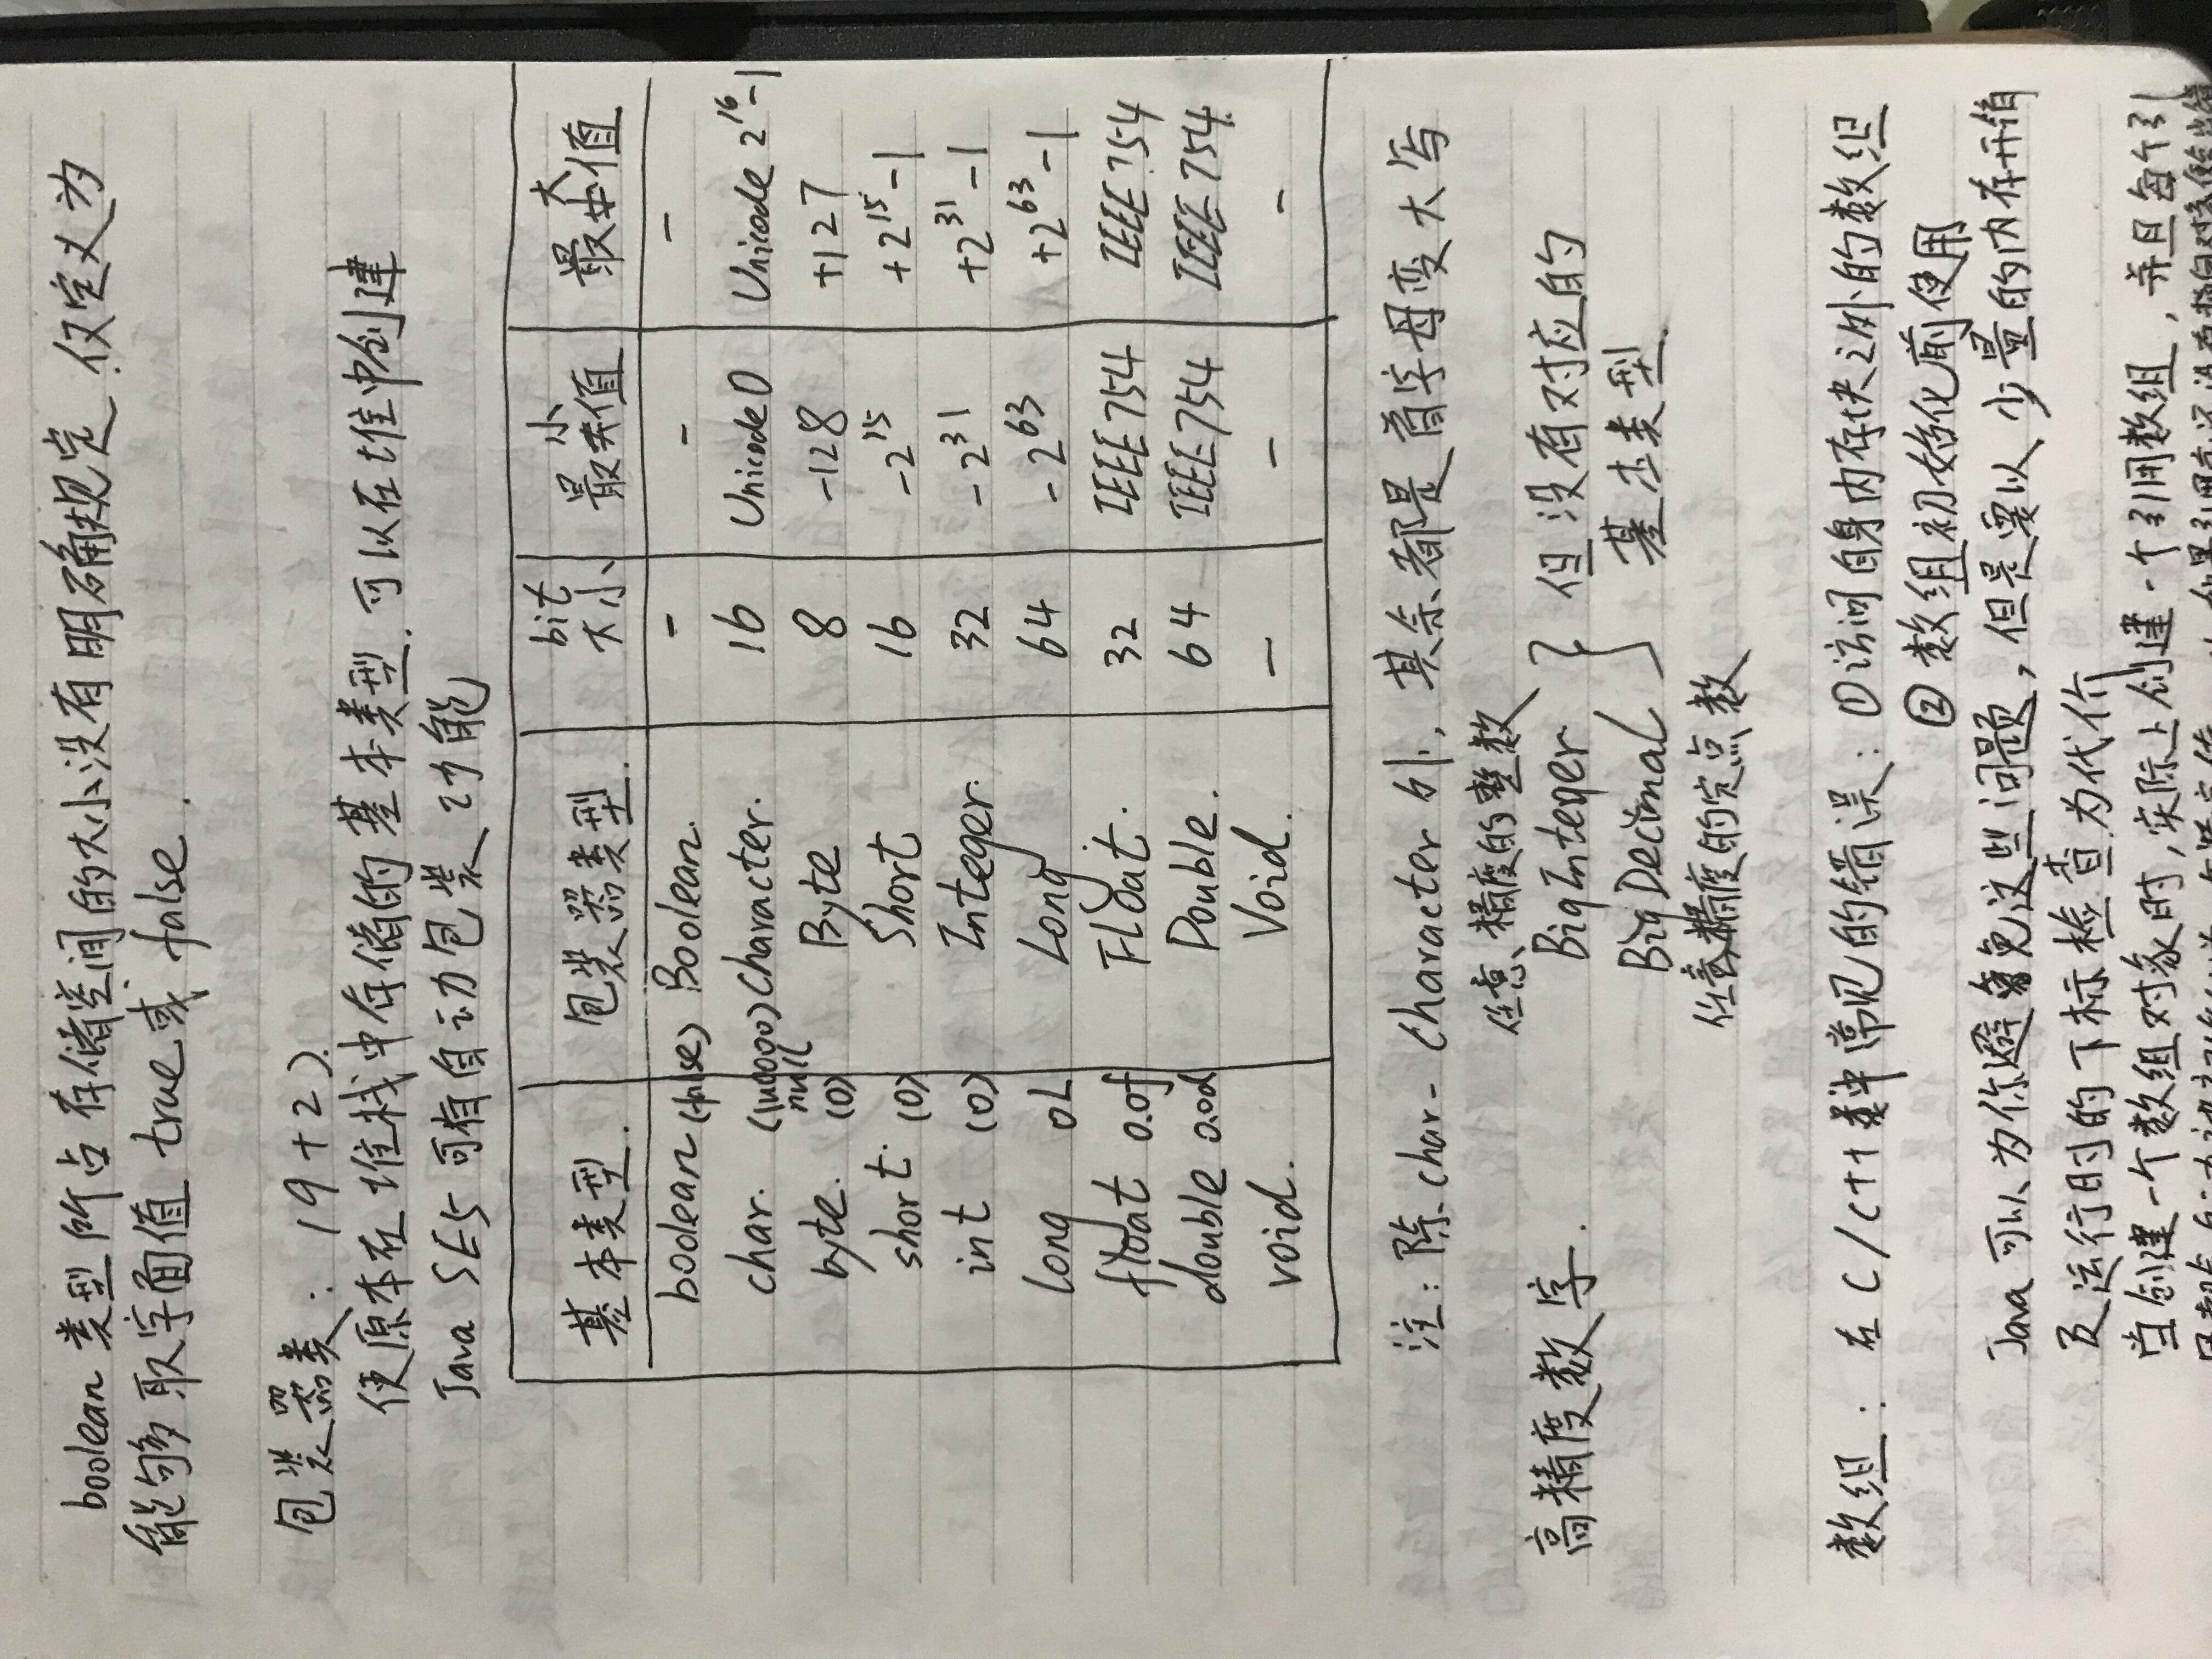 boolean 类型所占存储空间的大小没有明确规定，仅定义为
能够取字面值 true 或 false.
包装器类：(9+2).
使原本在堆栈中存储的基本类型，可以在堆中创建
Java SE5 可有自动包装功能
基本类型. 包装器类型. bit大小 最小值 最大值
boolean (false) Boolean. - - -
char. (\u0000) null Character. 16 Unicode 0 Unicode 2^16-1
byte. (0) Byte 8 -128 +127
short. (0) Short 16 -2^15 +2^15-1
int (0) Integer. 32 -2^31 +2^31-1
long 0L Long 64 -2^63 +2^63-1
float 0.0f Float. 32 IEEE754 IEEE754
double 0.0d Double. 64 IEEE754 IEEE754.
void. Void. — — -
注：除 char - Character 外，其余都是首字母变大写
任意精度的整数
高精度数字. BigInteger } 但没有对应的
BigDecimal 基本类型.
任意精度的定点数
数组：在 C/C++ 中常见的错误：①访问自身内存块之外的数组
②数组初始化前使用
Java 可以为你避免这些问题，但是要以少量的内存开销
及运行时的下标检查为代价
当创建一个数组对象时，实际上创建一个引用数组，并且每个引